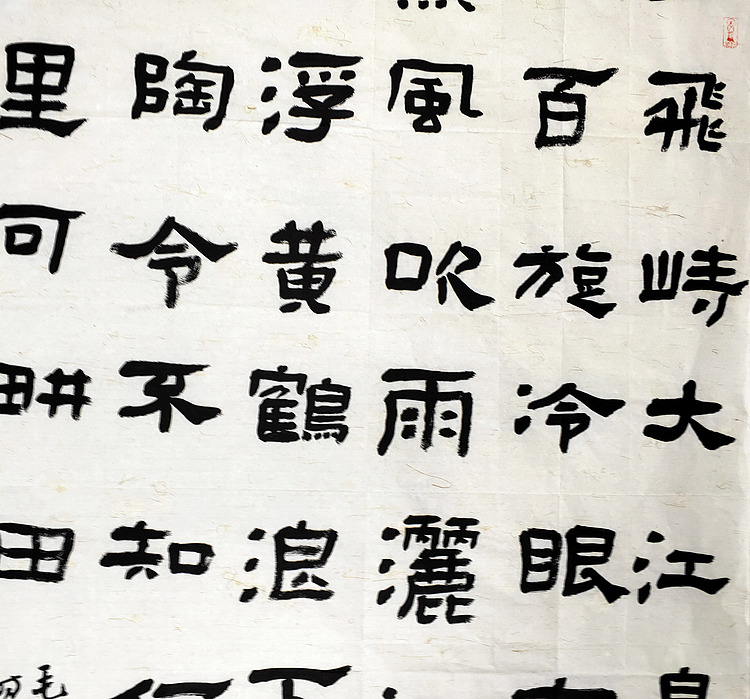 飛峙大江
百旋冷眼
風吹雨灑
浮黄鶴浪下
陶令不知何
里可畊田
毛